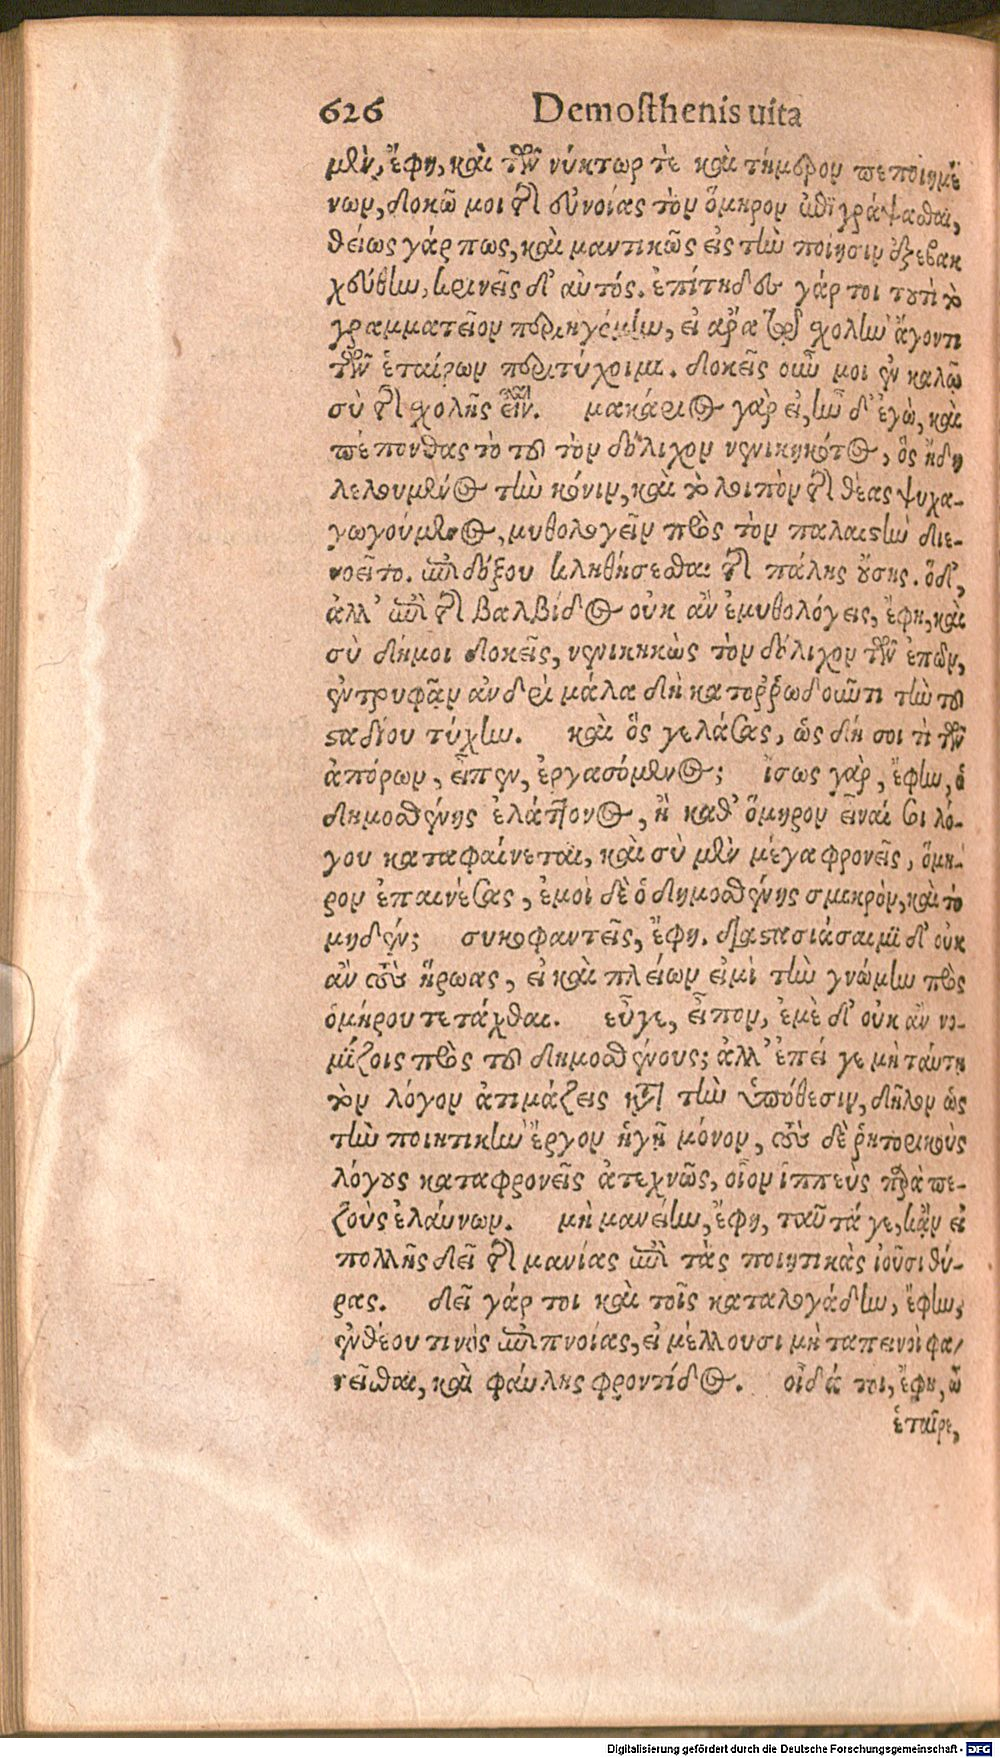 626 Demosthenis uita
μὲν, ἔφη, καὶ τῶν νύκτωρ τὲ καὶ τήμερον πεποιημέ
νων, δοκῶ μοι τῆς συνοίας τὸν ὅμηρον ἐπιγράψασθαι,
θείως γάρ πως, καὶ μαντικῶς εἰς τὴν ποίησιν ἐξεβακ
χεύθην, κρινεῖς δ' αὐτός. ἐπίτηδες γάρ τοι τουτὶ τὸ
γραμματεῖον περιηγόμην, εἰ ἄρα τῳ σχολὴν ἄγοντι
τῶν ἑταίρων περιτύχοιμι. δοκεῖς οὖν μοι ἐν καλῷ
σὺ τῆς σχολῆς εἶναι. μακάριος γὰρ εἶ, ἦν δ' ἐγὼ, καὶ
πέπονθας τὸ τοῦ τὸν δόλιχον νενικηκότος, ὃς ἤδη
λελουμένος τὴν κόνιν, καὶ τὸ λοιπὸν τῆς θέας ψυχα-
γωγούμενος, μυθολογεῖν πρὸς τὸν παλαιστὴν διε-
νοεῖτο, περὶ δόξου κληθήσεσθαι τῆς πάλης οὔσης. ὁδ',
ἀλλ' ἐπὶ τῆς βαλβίδος οὐκ ἂν ἐμυθολόγεις, ἔφη, καὶ
σὺ δή μοι δοκεῖς, νενικηκὼς τὸν δόλιχον τῶν ἐπῶν,
ἐντρυφᾷν ἀνδρὶ μάλα δὴ κατοῤῥωδοῦντι τὴν τοῦ
σταδίου τύχην. καὶ ὃς γελάσας, ὡς δή σοι τὶ τῶν
ἀπόρων, εἶπεν, ἐργασόμενος; ἴσως γὰρ, ἔφην, ὁ
δημοσθένης ἐλάττονος, ἢ καθ' ὅμηρον εἶναί σοι λό-
γου καταφαίνεται, καὶ σὺ μὲν μέγα φρονεῖς, ὅμη-
ρον ἐπαινέσας, ἐμοὶ δὲ ὁ δημοσθένης σμικρὸν, καὶ τὸ
μηδέν; συκοφαντεῖς, ἔφη. διαστασιάσαιμι δ' οὐκ
ἂν τοὺς ἥρωας, εἰ καὶ πλείων εἰμὶ τὴν γνώμην πρὸς
ὁμήρου τετάχθαι. εὖγε, εἶπον, ἐμὲ δ' οὐκ ἂν νο-
μίζοις πρὸς τοῦ δημοσθένους; ἀλλ' ἐπεί γε μὴ ταύτῃ
τὸν λόγον ἀτιμάζεις κατὰ τὴν ὑπόθεσιν, δῆλον ὡς
τὴν ποιητικὴν ἔργον ἡγῇ μόνον, τοὺς δὲ ῥητορικοὺς
λόγους καταφρονεῖς ἀτεχνῶς, οἷον ἱππεὺς παρὰ πε-
ζοὺς ἐλαύνων. μὴ μανείην, ἔφη, ταῦτά γε, κᾂν εἰ
πολλῆς δεῖ τῆς μανίας ἐπὶ τὰς ποιητικὰς ἰοῦσι θύ-
ρας. δεῖ γάρ τοι καὶ τοῖς καταλογάδην, ἔφην,
ἐνθέου τινὸς ἐπιπνοίας, εἰ μέλλουσι μὴ ταπεινοὶ φα/
νεῖσθαι, καὶ φαύλης φροντίδος. οἶδά τοι, ἔφη, ὦ
ἑταῖρε,
Digitalisierung gefördert durch die Deutsche Forschungsgemeinschaft - DFG